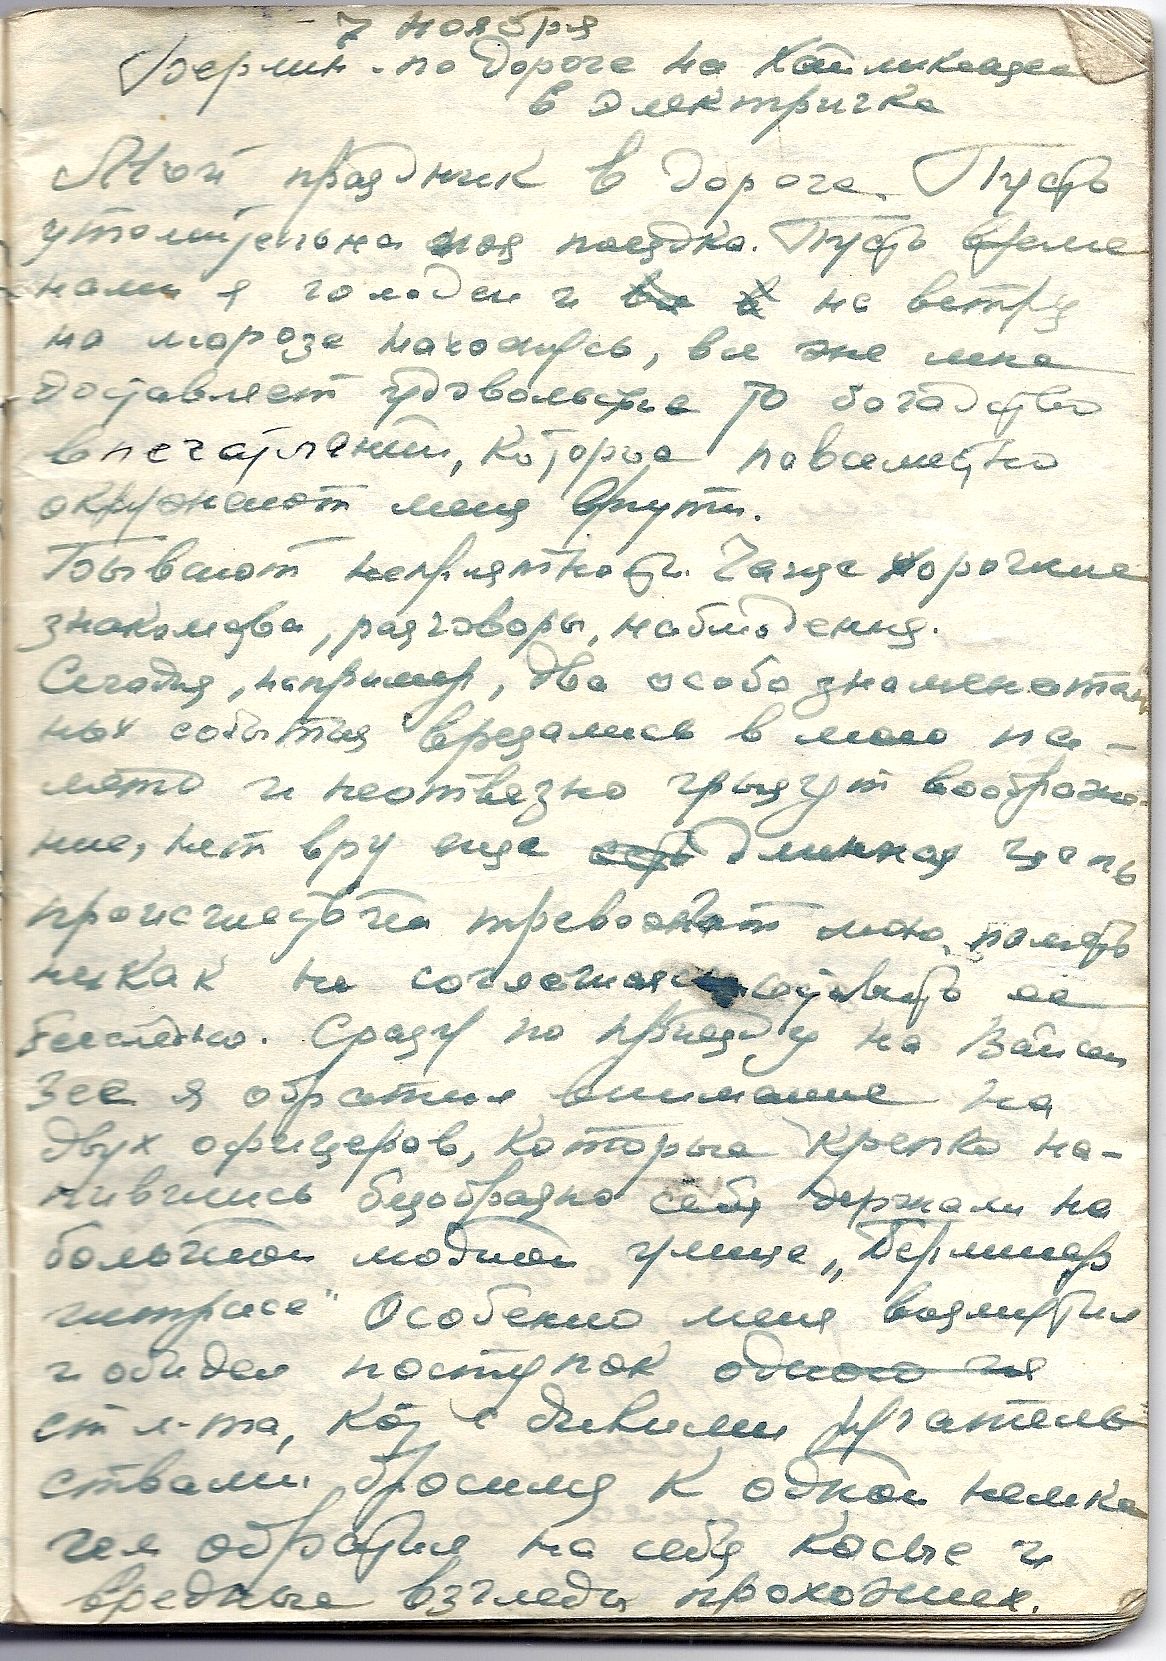 7 ноября
Берлин - по дороге на Кайльксдеа
в электричке
Мой праздник в дороге. Пусть
утомительна моя поездка. Пусть време
нами я голоден и на ветру
на морозе нахожусь, все же мне
доставляет удовольствие то богадство
впечатлений, которые повсеместно
окружают меня впути.
Бывают неприятности. Чаще короткие
знакомства, разговоры, наблюдения.
Сегодня, например, два особо знаменатель
ных события врезались в мою па-
мять и неотвязно грызут воображе-
ние, нет вру еще длинная цепь
происшествий тревожит мою память
никак не соглашаясь оставить ее
бесследно. Сразу по приезду на Вайсен
Зее я обратил внимание на
двух офицеров, которые крепко на-
пившись безобразно себя держали на
большой модной улице „Берлинер
штрасе" Особенно меня возмутил
и обидел поступок одного из
ст л-та, кот с дикими ругатель
ствами бросился к одной немке
чем обратил на себя косые и
вредные взгляды прохожих.